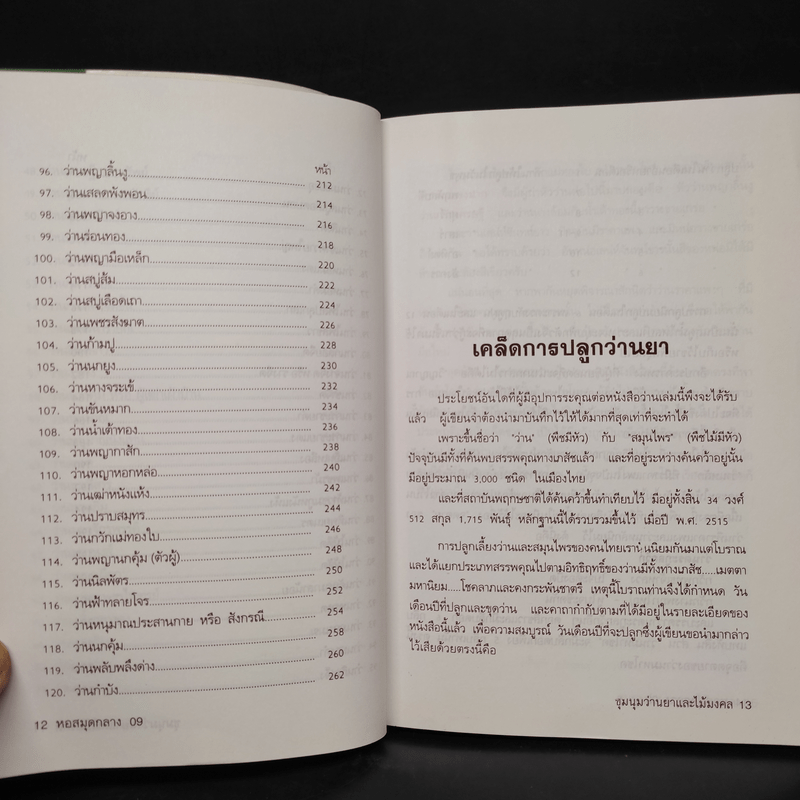 หน้า
96. ว่านพญาลิ้นงู 212
97. ว่านเสลดพังพอน 214
98. ว่านพญาจงอาง 216
99. ว่านร่อนทอง 218
100. ว่านพญามือเหล็ก 220
101. ว่านสบู่ส้ม 222
102. ว่านสบู่เลือดเถา 224
103. ว่านเพชรสังฆาต 226
104. ว่านก้ามปู 228
105. ว่านนกยูง 230
106. ว่านหางจระเข้ 232
107. ว่านขันหมาก 234
108. ว่านน้ำเต้าทอง 236
109. ว่านพญากาสัก 238
110. ว่านพญาหอกหล่อ 240
111. ว่านเฒ่าหนังแห้ง 242
112. ว่านปราบสมุทร 244
113. ว่านกวักแม่ทองใบ 246
114. ว่านพญานกคุ้ม (ตัวผู้) 248
115. ว่านนิลพัตร 250
116. ว่านฟ้าทลายโจร 252
117. ว่านหนุมาณประสานกาย หรือ สังกรณี 254
118. ว่านนกคุ้ม 258
119. ว่านพลับพลึงด่าง 260
120. ว่านกำบัง 262
12 หอสมุดกลาง 09
เคล็ดการปลูกว่านยา
ประโยชน์อันใดที่ผู้มีอุปการะคุณต่อหนังสือว่านเล่มนี้พึงจะได้รับ
แล้ว ผู้เขียนจำต้องนำมาบันทึกไว้ให้ได้มากที่สุดเท่าที่จะทำได้
เพราะขึ้นชื่อว่า "ว่าน" (พืชมีหัว) กับ "สมุนไพร" (พืชไม้มีหัว)
ปัจจุบันมีทั้งที่ค้นพบสรรพคุณทางเภสัชแล้ว และที่อยู่ระหว่างค้นคว้าอยู่นั้น
มีอยู่ประมาณ 3,000 ชนิด ในเมืองไทย
และที่สถาบันพฤกษชาติได้ค้นคว้าขึ้นทำเทียบไว้ มีอยู่ทั้งสิ้น 34 วงศ์
512 สกุล 1,715 พันธุ์ หลักฐานนี้ได้รวบรวมขึ้นไว้ เมื่อปี พ.ศ. 2515
การปลูกเลี้ยงว่านและสมุนไพรของคนไทยเรานั้นนิยมกันมาแต่โบราณ
และได้แยกประเภทสรรพคุณไปตามอิทธิฤทธิ์ของว่านมีทั้งทางเภสัช.....เมตตา
มหานิยม.....โชคลาภและคงกระพันชาตรี เหตุนี้โบราณท่านจึงได้กำหนด วัน
เดือนปีที่ปลูกและขุดว่าน และคาถากำกับตามที่ได้มีอยู่ในรายละเอียดของ
หนังสือนี้แล้ว เพื่อความสมบูรณ์ วันเดือนปีที่จะปลูกซึ่งผู้เขียนขอนำมากล่าว
ไว้เสียด้วยตรงนี้คือ
ชุมนุมว่านยาและไม้มงคล 13